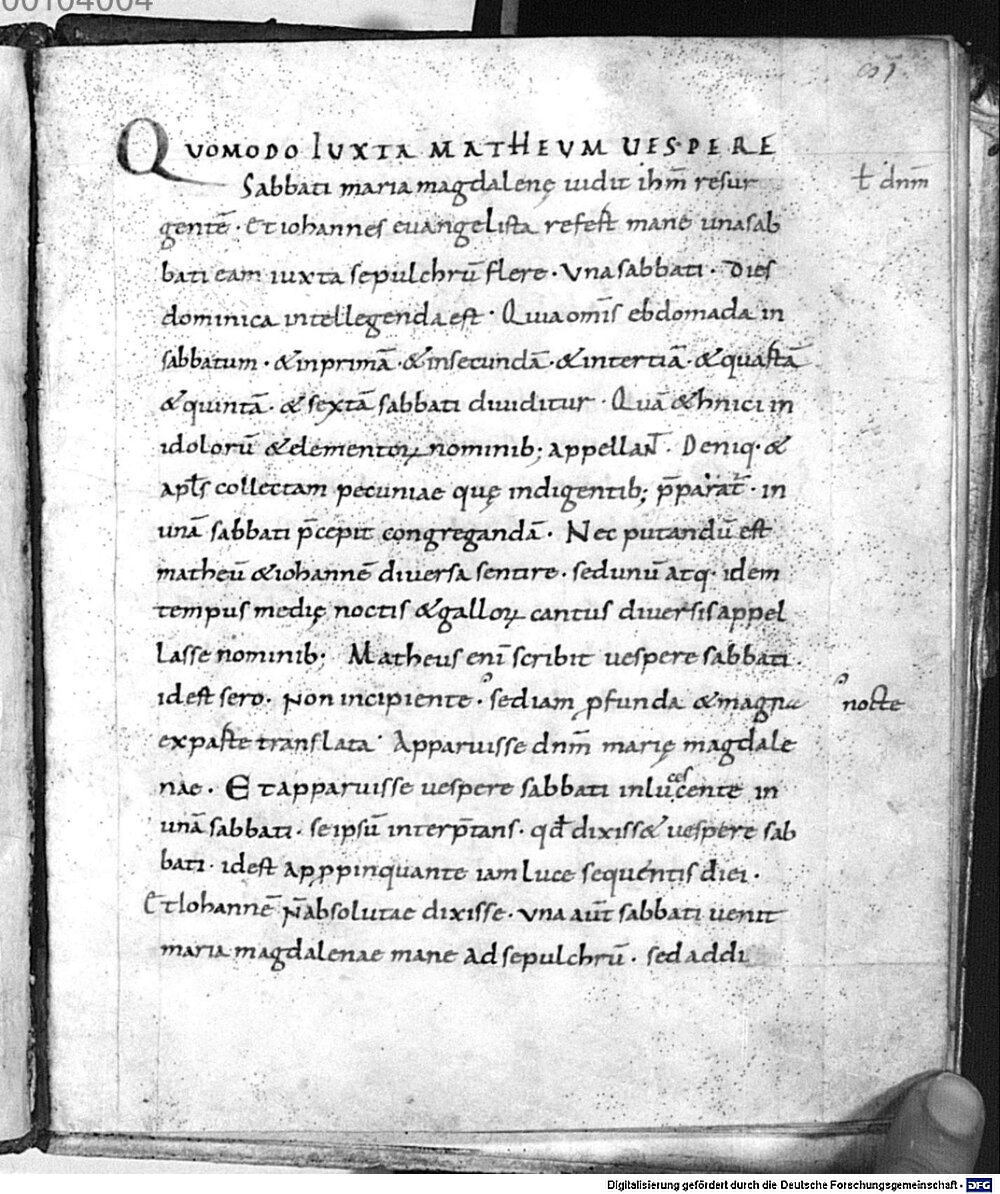 00104004
QUOMODO IUXTA MATHEUM UESPERE
Sabbati maria magdalenę uidit ihm̄ resur
ł dnm̄
gentē · Et iohannes euangelista refert mane unasab
bati eam iuxta sepulchrū flere · Vna sabbati · Dies
dominica intellegenda est · Quia om̄is ebdomada in
sabbatum · &inprimā · &insecundā · &intertiā · &quartā
&quintā · & sextā sabbati diuiditur · Quā &hnici in
idolorū &elementoꝝ nominib; appellanT̄ · Deniq· &
apl̄s collectam pecuniae quę indigentib; p̄parat̄ · in
unā sabbati p̄cepit congregandā · Nec putandū est
matheū &iohannē diuersa sentire · sedunū atq· idem
tempus medię noctis &galloꝝ cantus diuersis appel
lasse nominib; Matheus enī scribit uespere sabbati ·
idest sero · Non incipiente · sediam ꝓfunda &magna
nocte
exparte translata · Apparuisse dnm̄ marię magdale
nae · Et apparuisse uespere sabbati inlucente in
ces
unā sabbati · seipsū interp̄tans · qd̄ dixiss& uespere sab
bati · idest apꝓpinquante iam luce sequentis diei ·
Et Iohannē n̄absolutae dixisse · una aut̄ sabbati uenit
maria magdalenae mane ad sepulchrū · sed addi
Digitalisierung gefördert durch die Deutsche Forschungsgemeinschaft - DFG